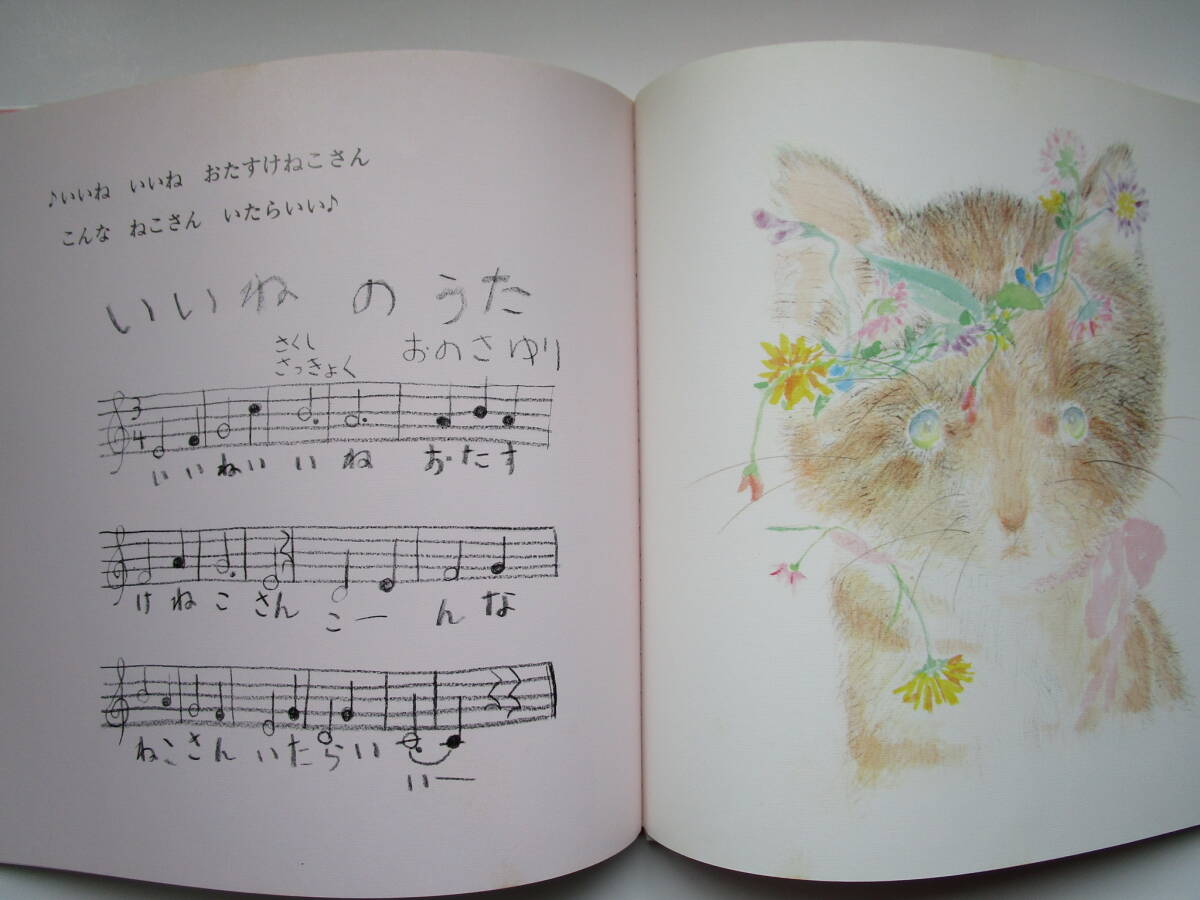 ♪いいね いいね おたすけねこさん
こんな ねこさん いたらいい♪
いいね の うた
さくし
さっきょく
おのさゆり
3
4
いいねい いね おたす
けねこさん こーんな
ねこさん いたらい いー